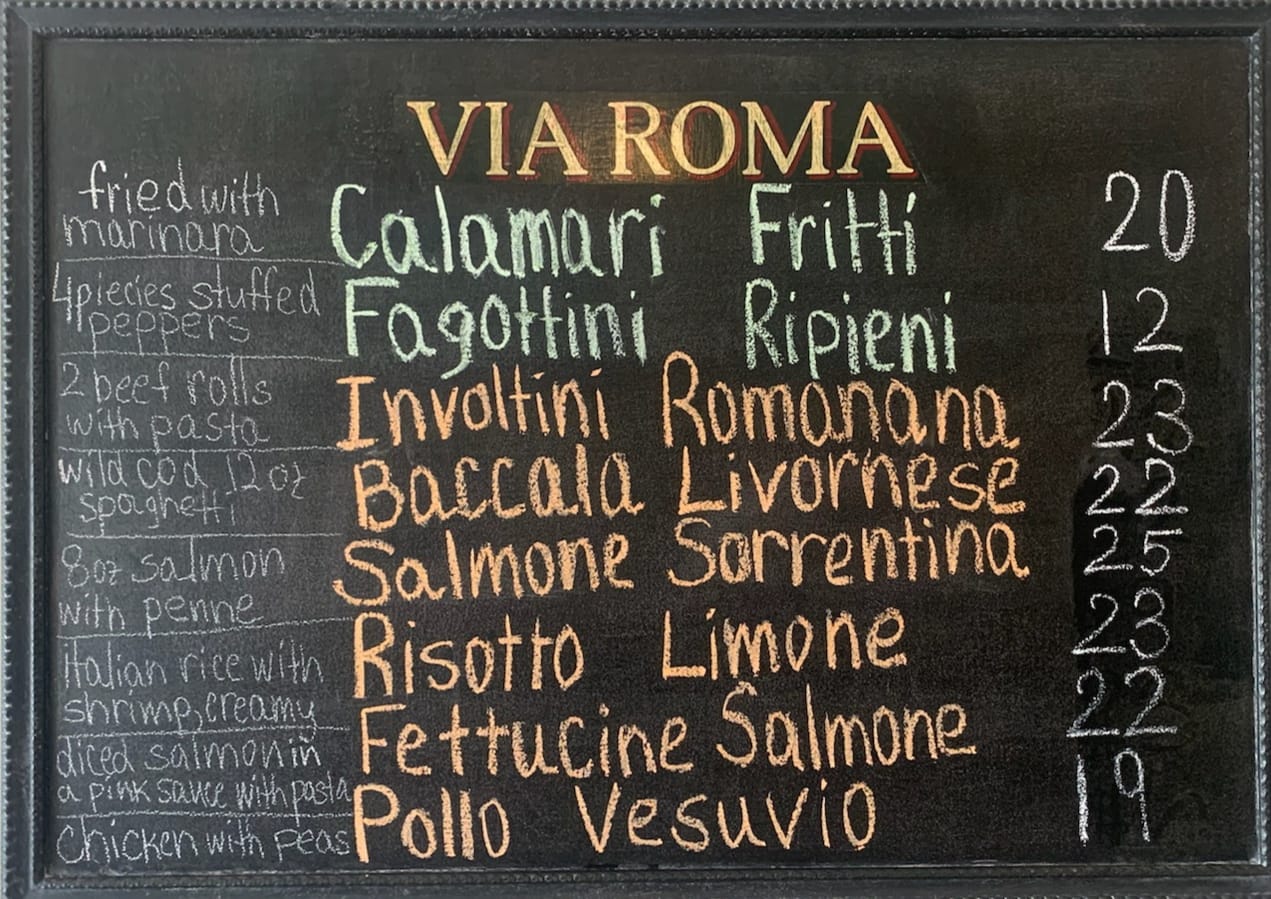 VIA ROMA
fried with
marinara
Calamari Fritti 20
4piecies stuffed
peppers
Fagottini Ripieni 12
2 beef rolls
with pasta
Involtini Romanana 23
wild cod 12 oz
spaghetti
Baccala Livornese 22
8oz salmon
with penne
Salmone Sorrentina 25
italian rice with
shrimp, creamy
Risotto Limone 23
diced salmon in
a pink sauce with pasta
Fettucine Salmone 22
Chicken with peas
Pollo Vesuvio 19